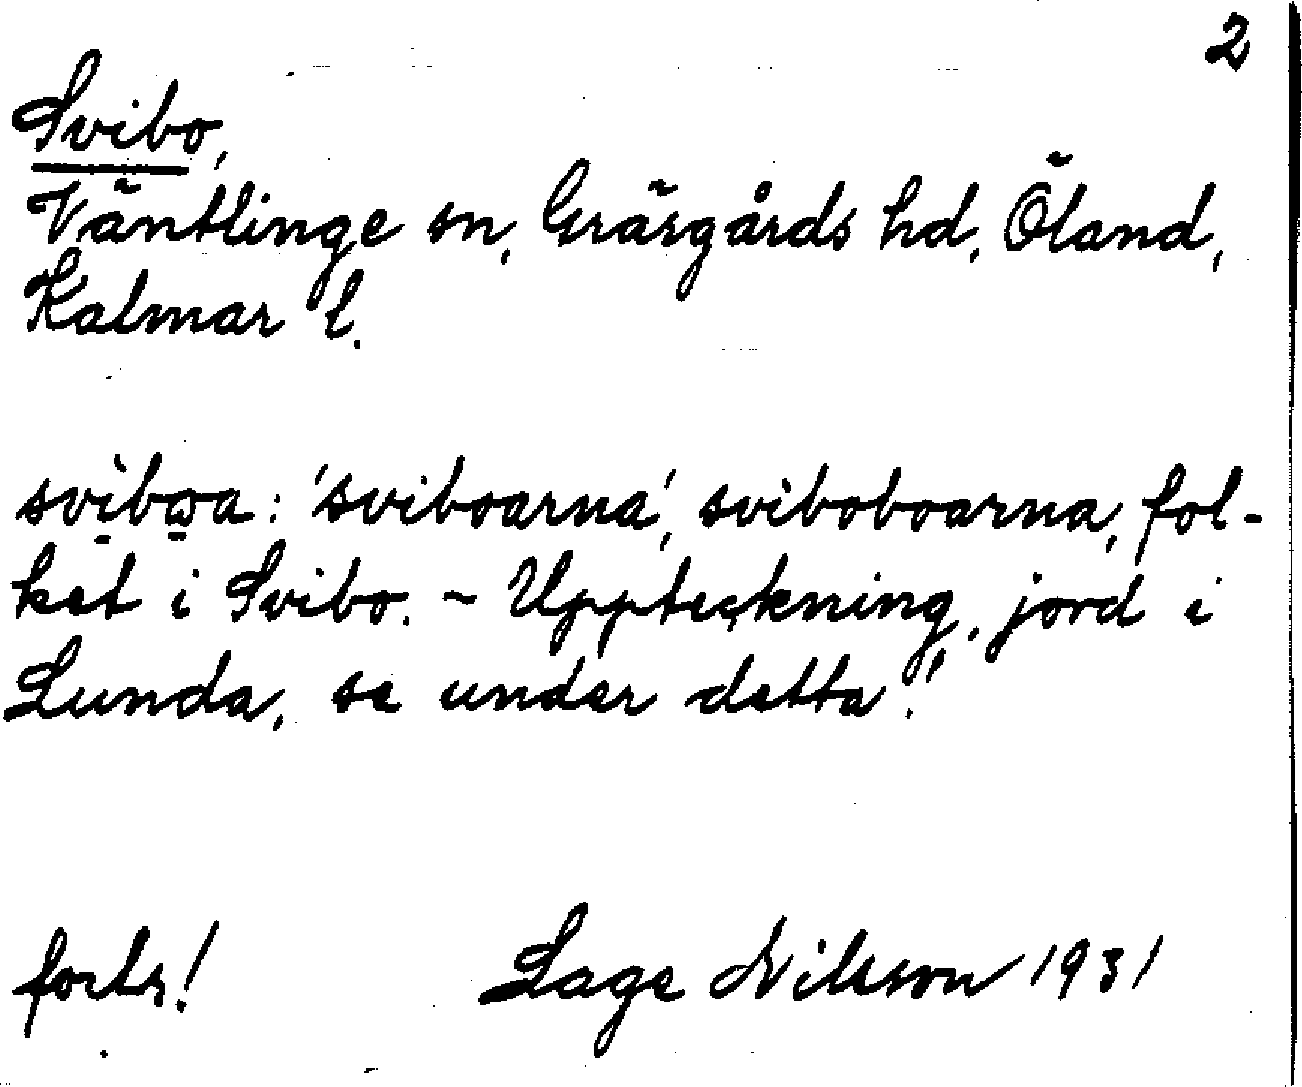 2
Svibo,
Väntlinge sn, Gräsgårds hd, Öland,
Kalmar l.
svibωa: 'sviboarna', sviboboarna, fol-
ket i Svibo. - Uppteckning, jord i
Lunda, se under detta!
forts! Lage Nilsson 1931